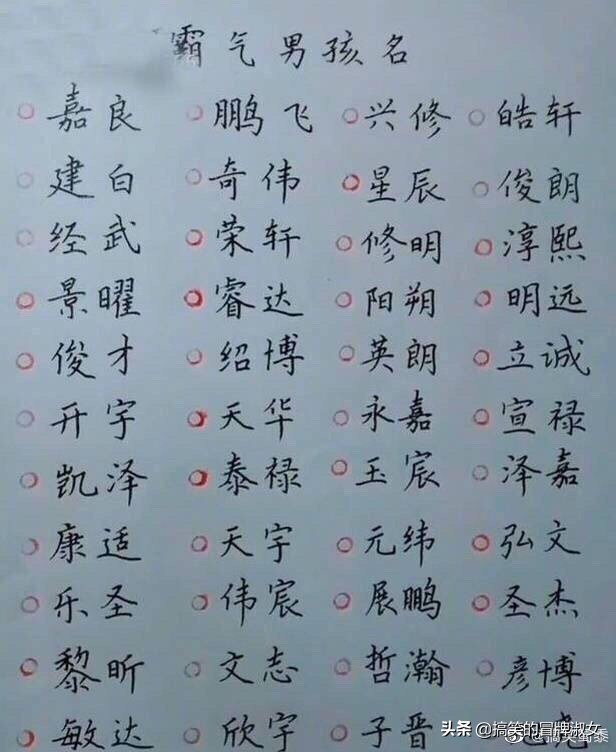 霸气男孩名
嘉良 鹏飞 兴修 皓轩
建白 奇伟 星辰 俊朗
经武 荣轩 修明 淳熙
景曜 睿达 阳朔 明远
俊才 绍博 英朗 立诚
开宇 天华 永嘉 宣禄
凯泽 泰禄 玉宸 泽嘉
康适 天宇 元纬 弘文
乐圣 伟宸 展鹏 圣杰
黎昕 文志 哲瀚 彦博
敏达 欣宇 子晋
头条 @搞笑的冒牌淑女